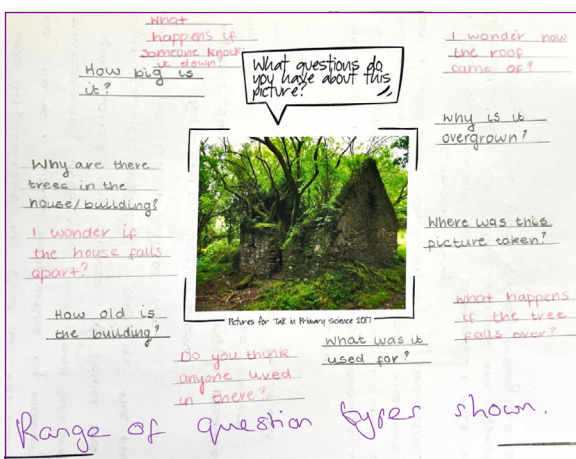 What
happens if
someone knock
it down?
How big is
it?
What questions do
you have about this
picture?
I wonder how
the roof
came of?
Why is it
overgrown?
Why are there
trees in the
house/building?
I wonder if
the house falls
apart?
Where was this
picture taken?
How old is
the building?
Pictures for Talk in Primary Science 2017
What happens
if the tree
falls over?
What was it
used for?
Do you think
anyone lived
in there?
Range of question types shown.